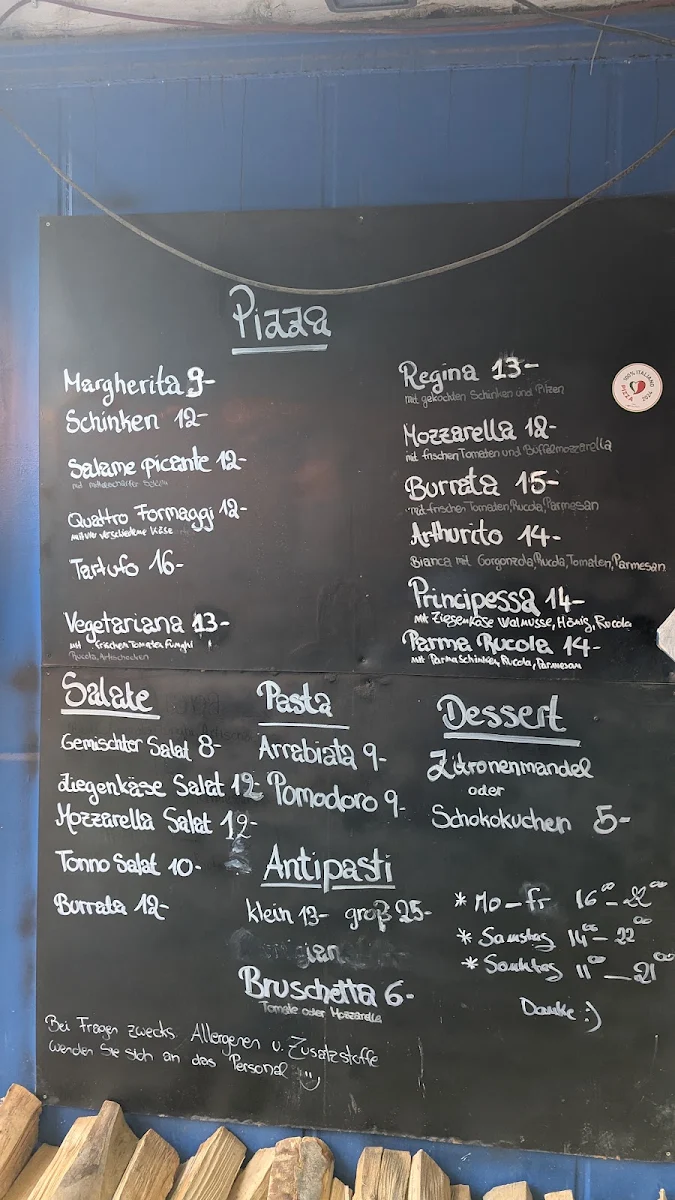 Pizza
Margherita 9-
Schinken 12-
Salame picante 12-
Quattro Formaggi 12-
mit vier verschiedene Käse
Tartufo 16-
Vegetariana 13-
mit frischen Tomaten Funghi
Rucola, Artischocken
Regina 13-
mit gekochten Schinken und Pilzen
Mozzarella 12-
mit frischen Tomaten und Büffelmozzarella
Burrata 15-
mit frischen Tomaten, Rucola, Parmesan
Arthurito 14-
Bianca mit Gorgonzola, Rucola, Tomaten, Parmesan
Principessa 14-
mit Ziegenkäse Walnusse, Honig, Rucola
Parma Rucola 14-
mit Parma Schinken, Rucola, Parmesan
100% ITALIANO
PIZZA 2024
Salate
Gemischter Salat 8-
Ziegenkäse Salat 12-
Mozzarella Salat 12-
Tonno Salat 10-
Burrata 12-
Pasta
Arrabiata 9-
Pomodoro 9-
Antipasti
klein 13- groß 25-
Bruschetta 6-
Tomate oder Mozzarella
Dessert
Zitronenmandel
oder
Schokokuchen 5-
* Mo – fr 16⁰⁰ – 22⁰⁰
* Samstag 14⁰⁰ – 22⁰⁰
* Sonntag 11⁰⁰ – 21⁰⁰
Danke :)
Bei Fragen zwecks Allergenen u. Zusatzstoffe
wenden Sie sich an das Personal